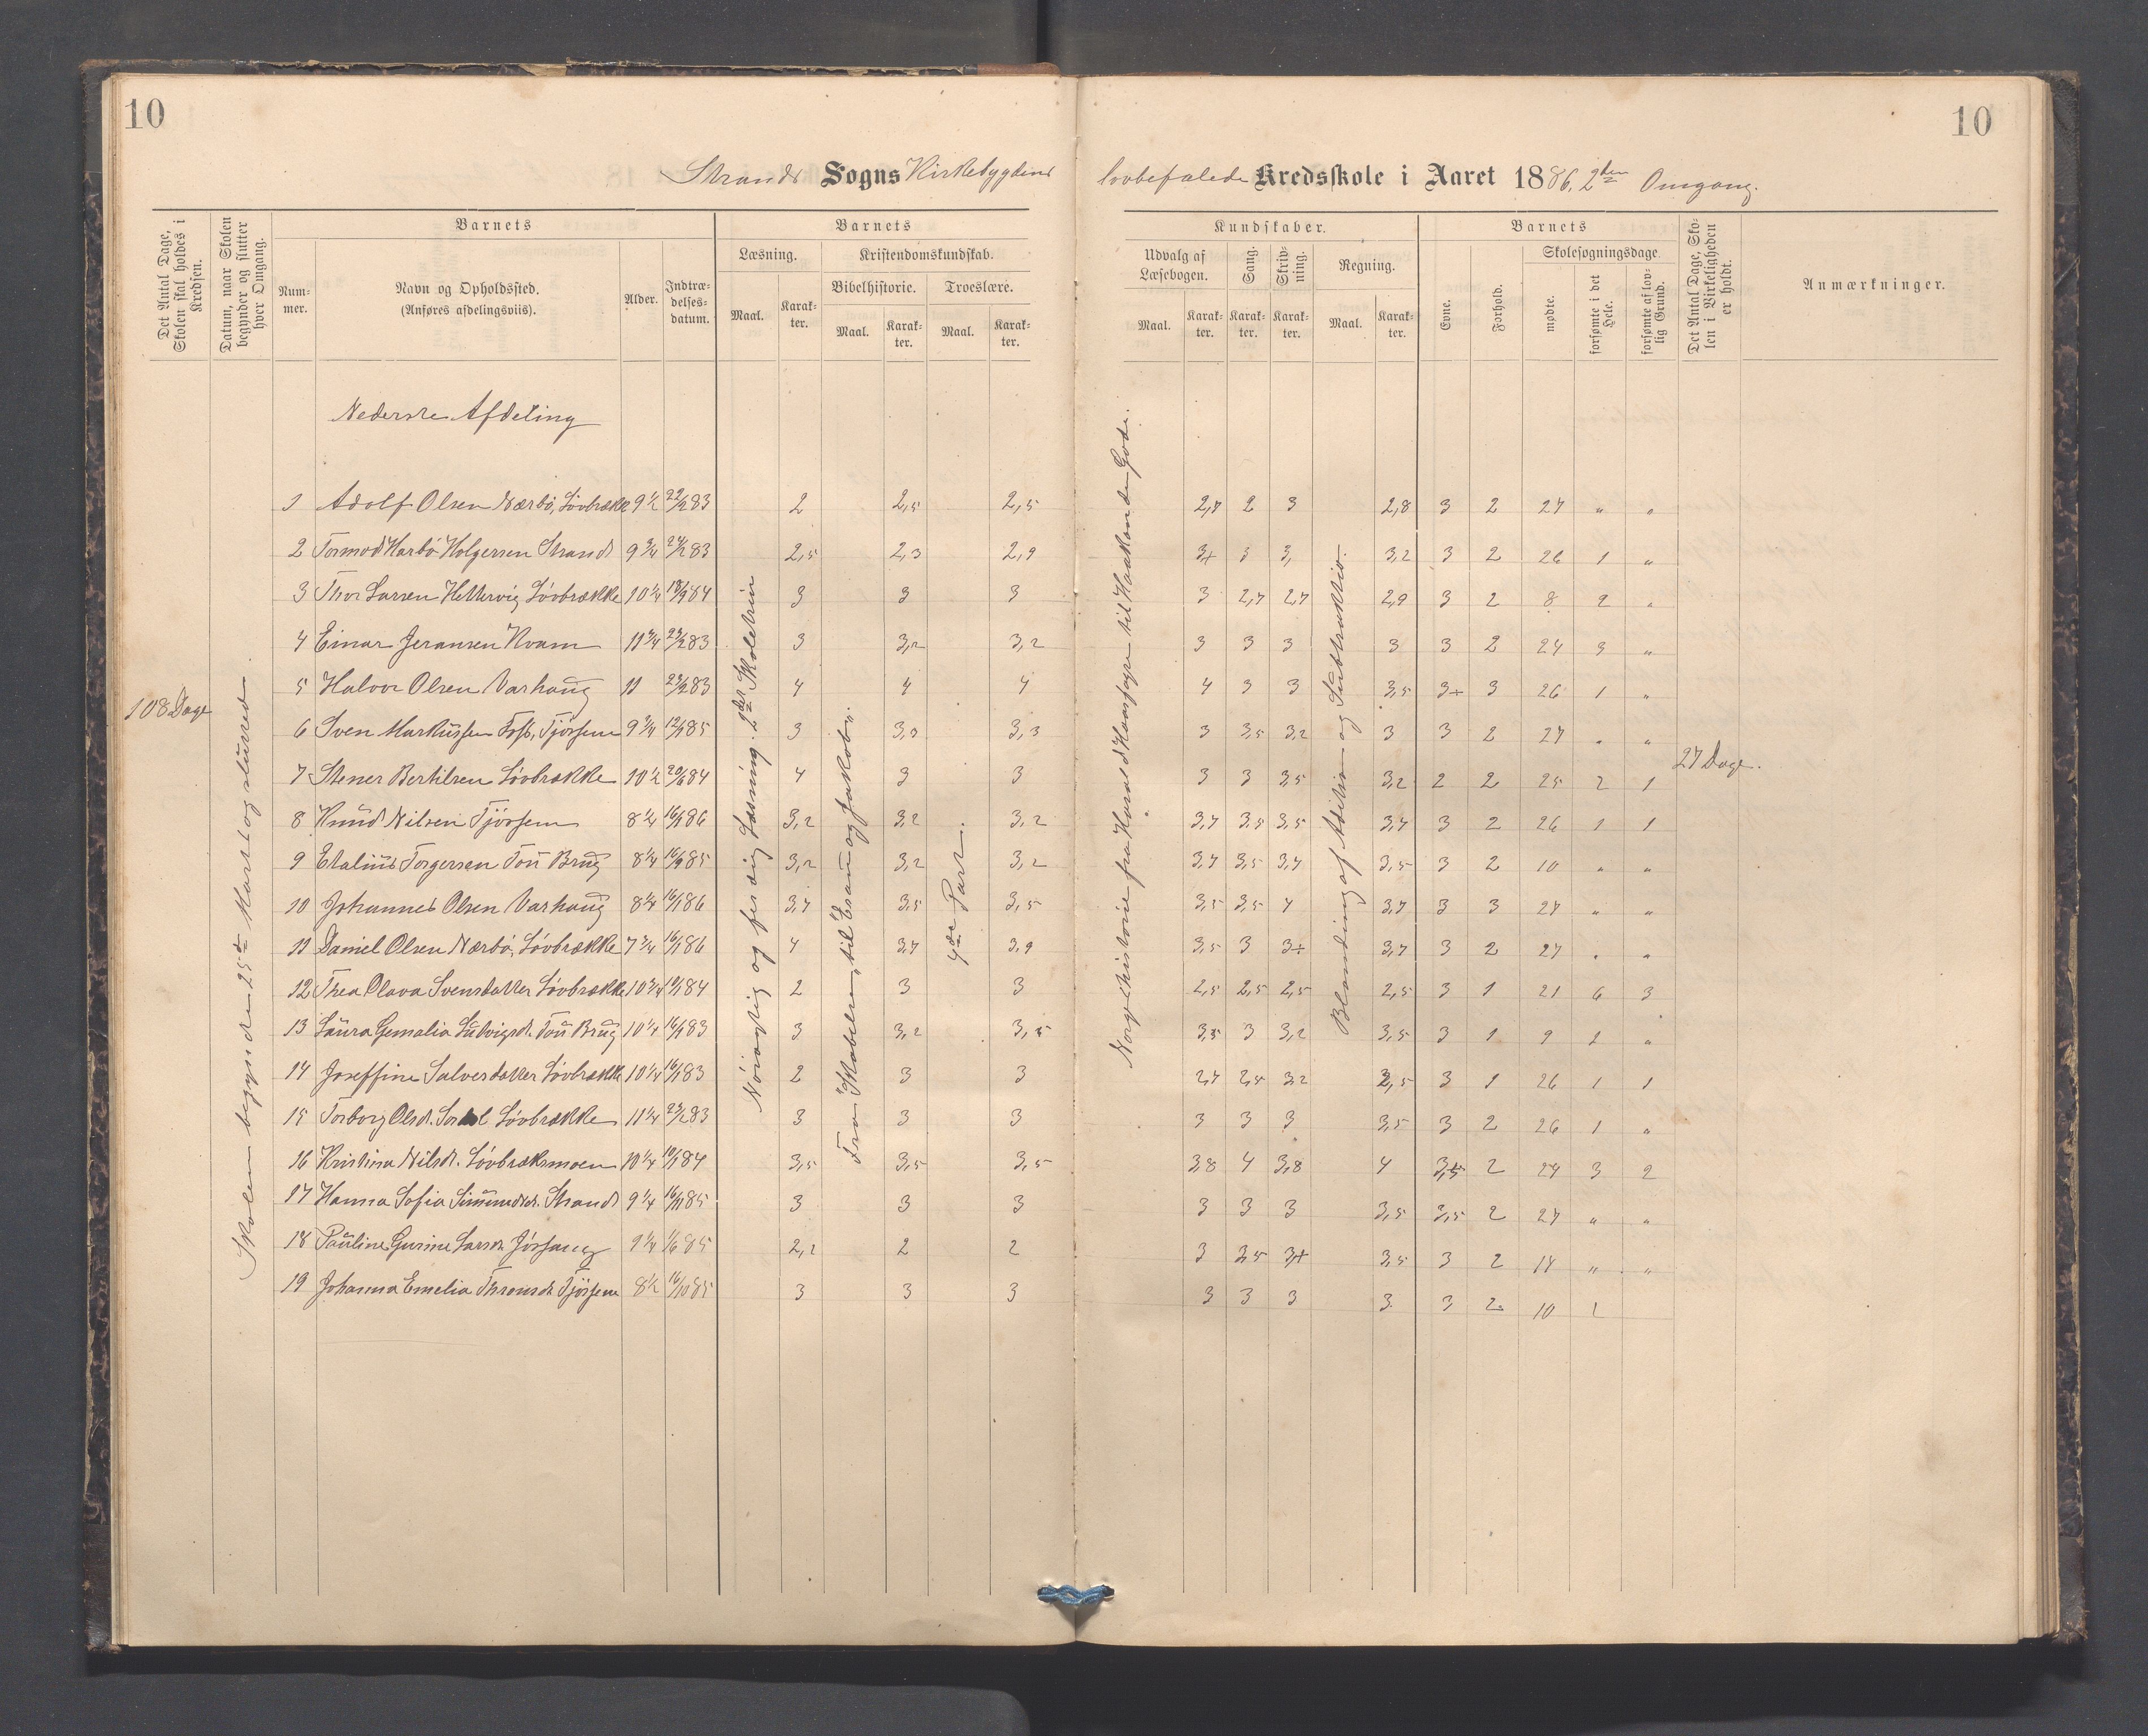 10
10
Strands Sogns Kirkebygdens lovbefalede Kredsskole i Aaret 1886, 2den Omgang.
Det Antal Dage, Skolen skal holdes i Kredsen.
Datum, naar Skolen begynder og slutter hver Omgang.
Barnets
Nummer.
Navn og Opholdssted.
(Anføres afdelingsviis).
Alder.
Indtrædelsesdatum.
Barnets
Læsning.
Maal.
Karakter.
Kristendomskundskab.
Bibelhistorie.
Maal.
Karakter.
Troeslære.
Maal.
Karakter.
Kundskaber.
Udvalg af Læsebogen.
Maal.
Karakter.
Sang.
Karakter.
Skrivning.
Karakter.
Regning.
Maal.
Karakter.
Barnets
Evne.
Forhold.
Skolesøgningsdage.
mødte.
forsømte i det Hele.
forsømte af lovlig Grund.
Det Antal Dage, Skolen i Virkeligheden er holdt.
Anmærkninger.
Nederste Afdeling
108 Dage
Skolen begyndte 25de Marts og sluttet
Nøiagtig og ferdig Læsning. 2det Skoletrin
Fra Skabelsen til Esau og Jakob.
4de Part.
Norges historie fra Harald Haarfagre til Haakon den Gode.
Blanding af Adition og Subtraktion.
27 Dage.
1 Adolf Olsen Nærbø, Løvbrække 9½ 22/2 83 2 2,5 2,5 2,7 2 3 2,8 3 2 27 " "
2 Tormod Harbo Holgersen Strand 9¾ 24/2 83 2,5 2,3 2,9 3+ 3 3, 3,2 3 2 26 1 "
3 Thor Larsen Hettervig Løvbrække 10¼ 18/9 84 3 3 3 3 2,7 2,7 2,9 3 2 8 2 "
4 Einar Jeransen Kvam 11¾ 23/2 83 3 3,2 3,2 3 3 3 3 3 2 24 3 "
5 Halvor Olsen Varhaug 11 23/2 83 4 4 4 4 3 3 3,5 3+ 3 26 1 "
6 Sven Markussen Tost, Tjøssem 9¾ 12/1 85 3 3,3 3,3 3 3,5 3,2 3 3 2 27 " "
7 Stener Bertilsen Løvbrække 10½ 20/6 84 4 3 3 3 3 3,5 3,2 2 2 25 2 1
8 Knud Nilsen Tjøssem 8¼ 16/1 86 3,2 3,2 3,2 3,7 3,5 3,5 3,7 3 2 26 1 1
9 Etalius Torgersen Tou Brug 8¼ 16/9 85 3,2 3,2 3,2 3,7 3,5 3,7 3,5 3 2 10 " "
10 Johannes Olsen Varhaug 8¼ 16/1 86 3,7 3,5 3,5 3,5 3,5 4 3,7 3 3 27 " "
11 Daniel Olsen Nærbø, Løvbrække 7¾ 16/1 86 4 3,7 3,9 3,5 3 3+ 3,7 3 2 27 " "
12 Thea Olava Svensdatter Løvbrække 10¾ 10/1 84 2 3 3 2,5 2,5 2,5 2,5 3 1 21 6 3
13 Laura Gemalia Ludvigsd. Tou Brug 10¼ 16/1 83 3 3,2 3,5 3,5 3 3,2 3,5 3 1 9 1 "
14 Joseffine Salvesdatter Løvbrække 10¼ 16/1 83 2 3 3 2,7 2,5 3,2 2,5 3 1 26 1 1
15 Torborg Olsd. Løvbrække 11¼ 23/2 83 3 3 3 3 3 3 3,5 3 2 26 1 "
16 Kristina Nilsd. Løvbrækmoen 10¼ 10/1 84 3,5 3,5 3,5 3,8 4 3,8 4 3,5 2 24 3 2
17 Hanna Sofia Simundsd. Strand 9¼ 16/1 85 3 3 3 3 3 3 3,5 3,5 2 27 " "
18 Pauline Gurine Larsd. Jøssang 9¼ 1/6 85 2,2 2 2 3 3,5 3+ 3,5 3 2 14 " "
19 Johanna Emelia Thronsd. Tjøssem 8½ 16/10 85 3 3 3 3 3 3 3 3 2 10 1